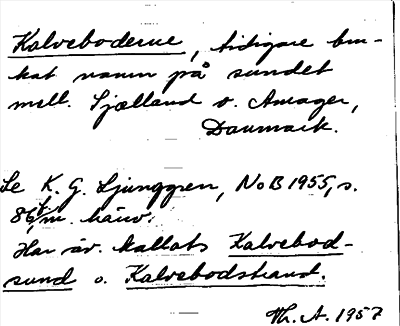 Kalveboderne, tidigare bru-
kat namn på sundet
mell. Sjælland o. Amager,
Danmark.
Se K. G. Ljunggren, NoB 1955, s.
86 m. hänv.
Har äv. kallats Kalvebod-
sund o. Kalvebodstrand.
Th. A. 1957